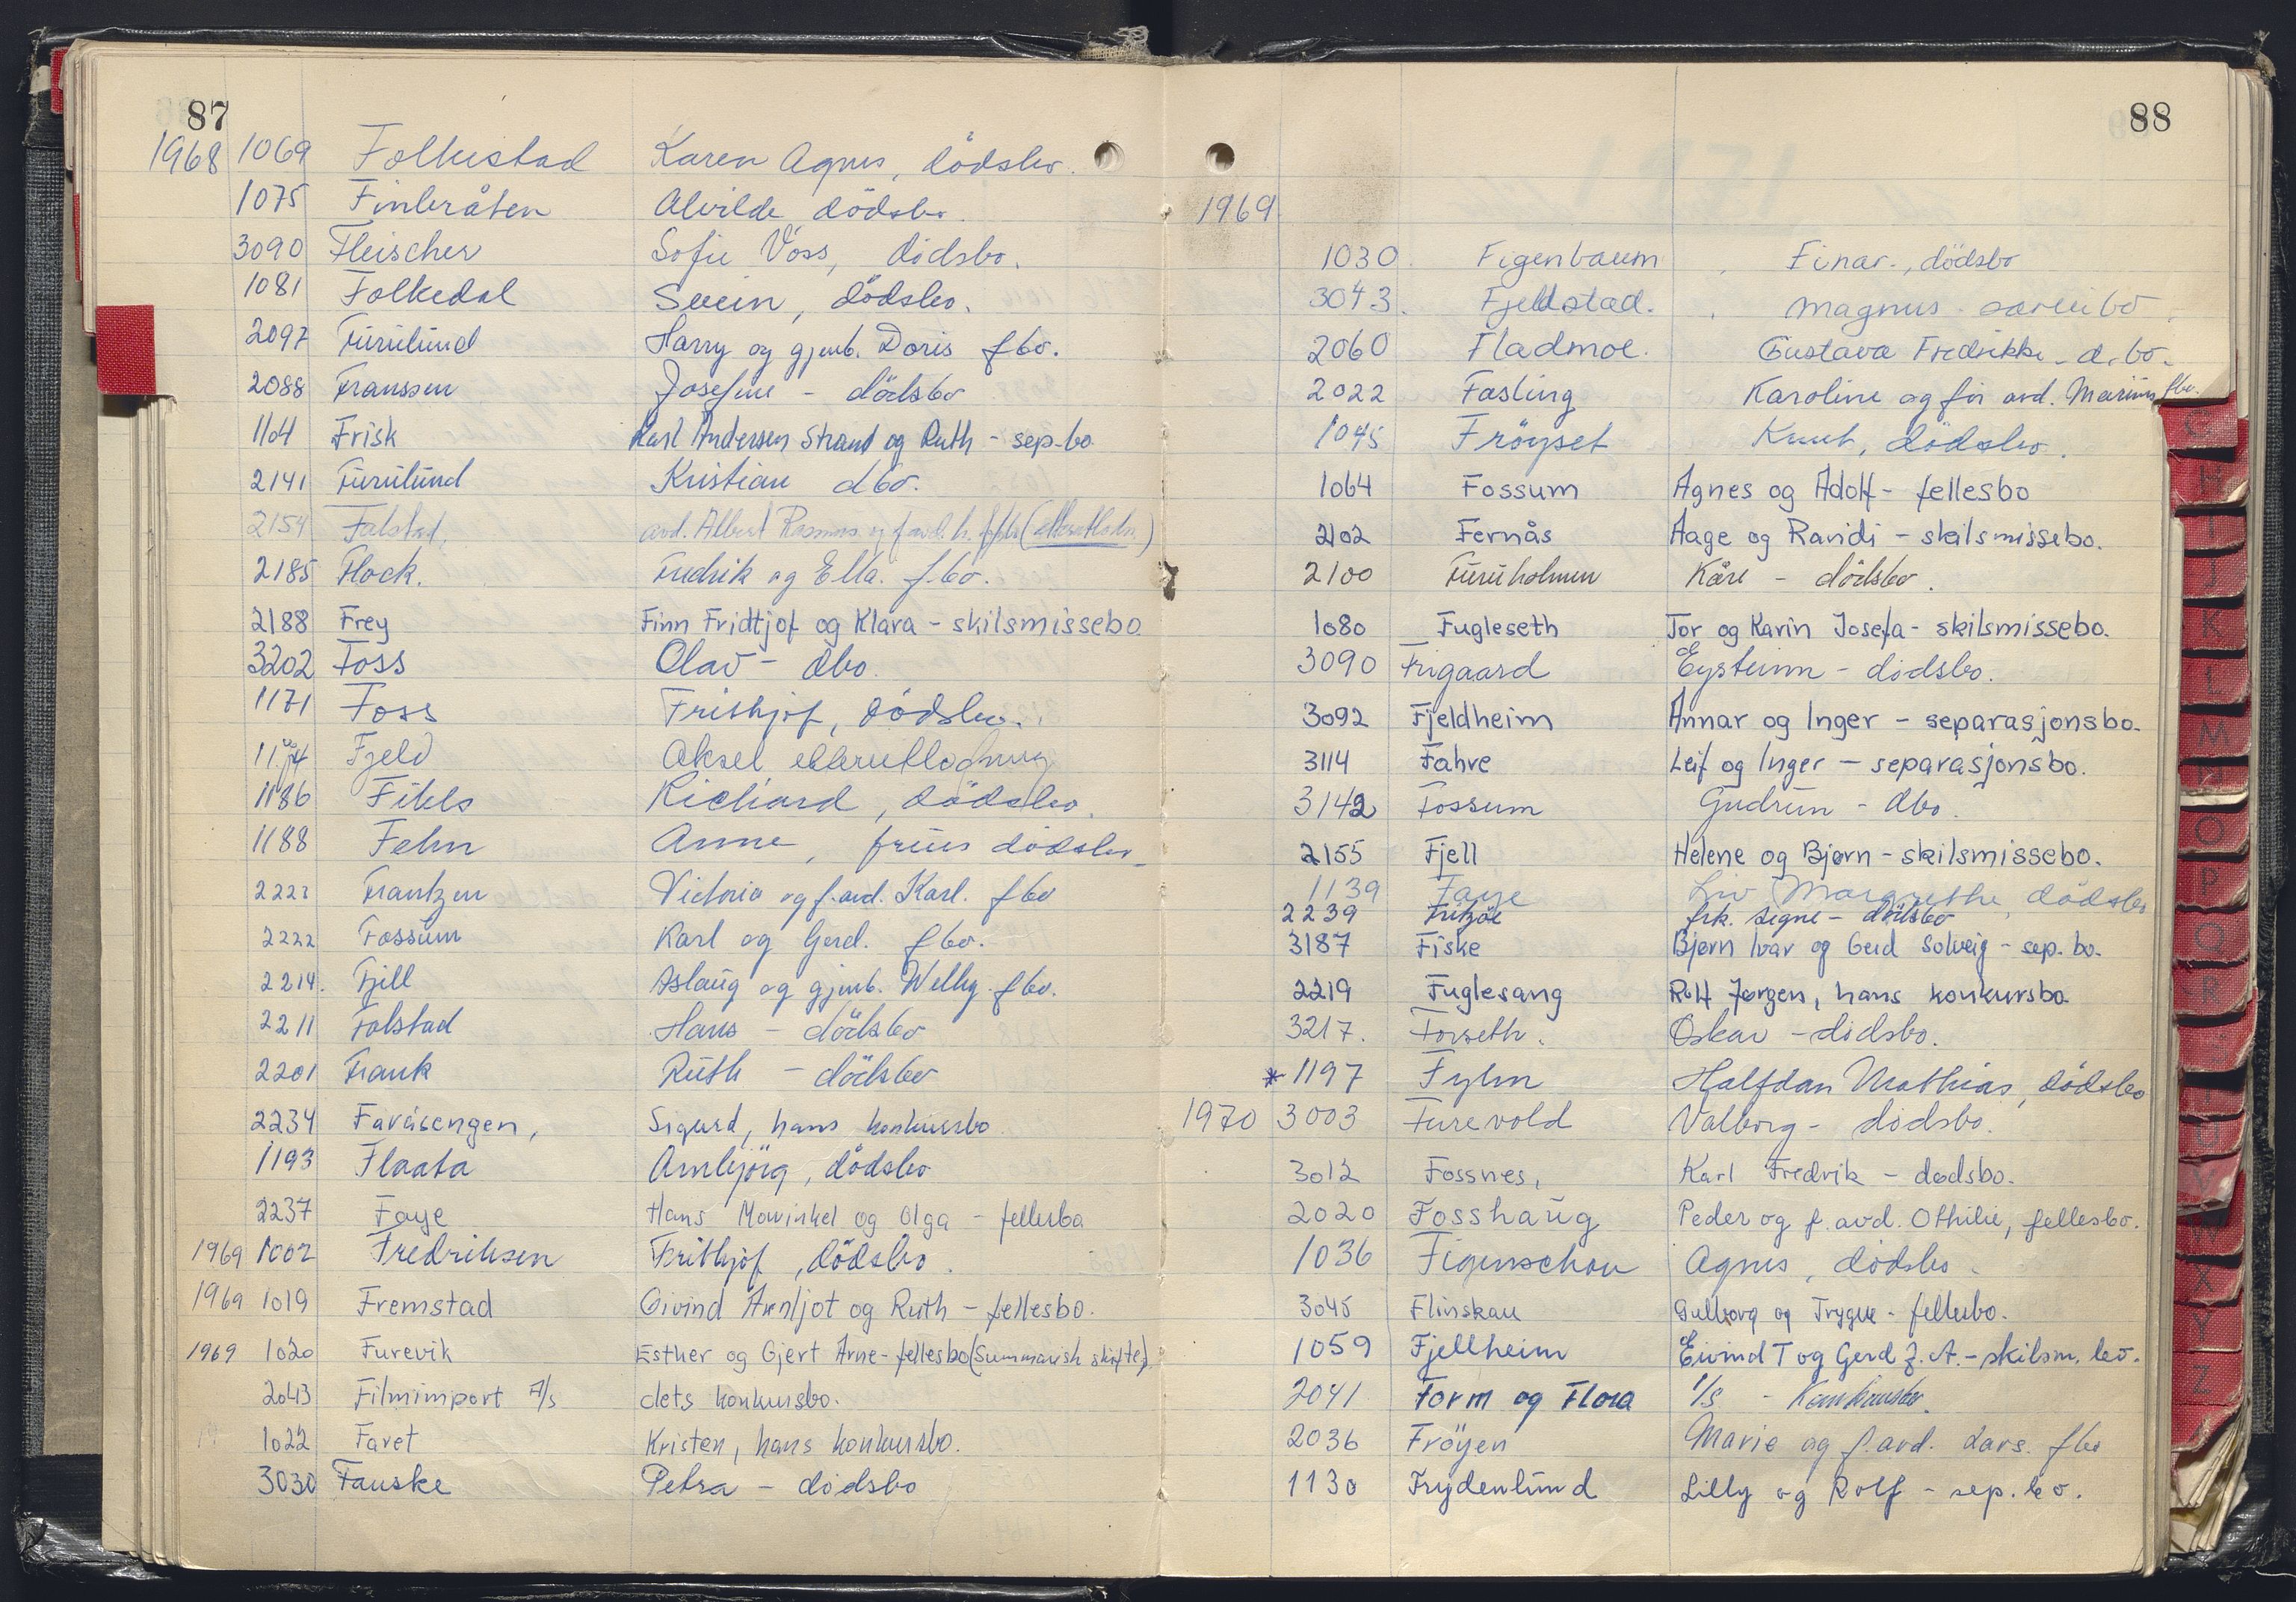 87
1968 1069 Folkestad Karen Agnes, dödsbo.
1075 Finbråten Alvilde dödsbo.
3090 Fleischer Sofie Voss, dödsbo.
1081 Folkedal Svein, dödsbo.
2097 Furulund Harry og gjenb. Doris fbo.
2088 Franssen Josefine - dödsbo
1104 Frisk Karl Andersen Strand og Ruth - sep-bo
2141 Furulund Kristian dbo.
2154 Falstad, avd. Albert Rasmus og f. avd. h.
2185 Flock. Fredrik og Ella. f.bo.
2188 Frey Finn Fridtjof og Klara - skilsmissebo
3202 Foss Olav - dbo
1171 Foss Frithjof, dödsbo.
Fjeld Aksel
1186 Fikls Richard, dödsbo.
1188 Fehn Anne, frues dödsbo
222 Frantzen Victoria og f. avd. Karl. fbo
2222 Fossum Karl og Gerd. fbo.
2214. Fjell Aslaug og gjenb. Welly. fbo.
2211 Falstad Hans - dödsbo
2201 Frank Ruth - dödsbo
2234 Favåsengen, Sigurd, hans konkursbo
1193 Flaata Arnbjörg, dödsbo
2237 Faye Hans Mowinkel og Olga - fellesbo
1969 1002 Fredriksen Frithjof, dödsbo.
1969 1019 Fremstad Oivind Arnljot og Ruth - fellesbo.
1969 1020 Furevik Esther og Gjert Arne - fellesbo (Summarisk skifte).
2043 Filmimport A/s dets konkursbo.
1022 Favet Kristen, hans konkursbo.
3030 Fauske Petra - dödsbo
88
1969
1030. Figenbaum Einar., dödsbo
3043. Fjeldstad. Magnus
2060 Fladmoe. Gustava Fredrikke - d.bo.
2022 Fasting Karoline og for avd. Marius fbo.
1045 Fröyset Knut, dödsbo.
1064 Fossum Agnes og Adolf - fellesbo
2102 Fernås Aage og Ravidi - skilsmissebo.
2100 Furuholmen Kåre - dödsbo.
1080 Fugleseth Tor og Karin Josefa - skilsmissebo.
3090 Frigaard Eysteinn - dödsbo.
3092 Fjeldheim Annar og Inger - separasjonsbo.
3114 Fahre Leif og Inger - separasjonsbo.
3142 Fossum Gudrun - dbo.
2155 Fjell Helene og Bjørn - skilsmissebo.
1139 Faye Liv Margrethe, dödsbo
2239 frk. Signe - dödsbo
3187 Fiske Bjørn Ivar og Gerd Solveig - sep. bo.
2219 Fuglesang Rolf Jørgen, hans konkursbo
3217. Forseth. Oskar - dödsbo.
* 1197 Fylm Halfdan Mathias, dödsbo
1970 3003 Furevold Valborg - dödsbo.
3012 Fossnes, Karl Fredrik - dødsbo.
2020 Fosshaug Peder og f. avd. Othilie, fellesbo.
1036 Figenschou Agnes, dödsbo.
3045 Flinskau Gullborg og Trygve - fellesbo.
1059 Fjellheim Eivind T og Gerd J. A. - skilsm. bo.
2041 Form og Flora I/S - Konkursbo.
2036 Fröyen Marie og f. avd. Lars. fbo
1130 Frydenlund Lilly og Rolf - sep. bo.
G
H
I
J
K
L
M
N
O
P
Q
R
U
V
W
X
Y
Z